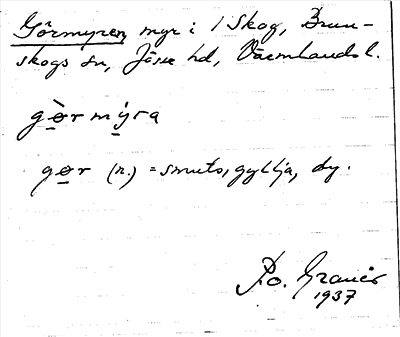 Görmyren, myr i 1 Skog, Brun-
skogs sn, Jösse hd, Värmlands l.
gø̀r mỳra
gør (n.) = smuts, gyttja, dy.
Po. Granér
1937